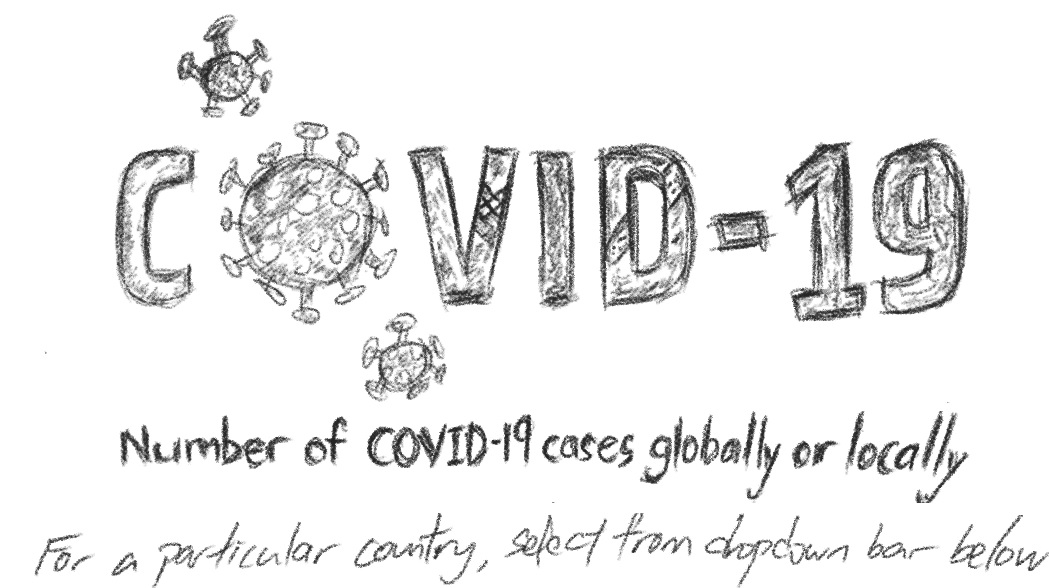 COVID-19
Number of COVID-19 cases globally or locally
For a particular country, select from dropdown bar below